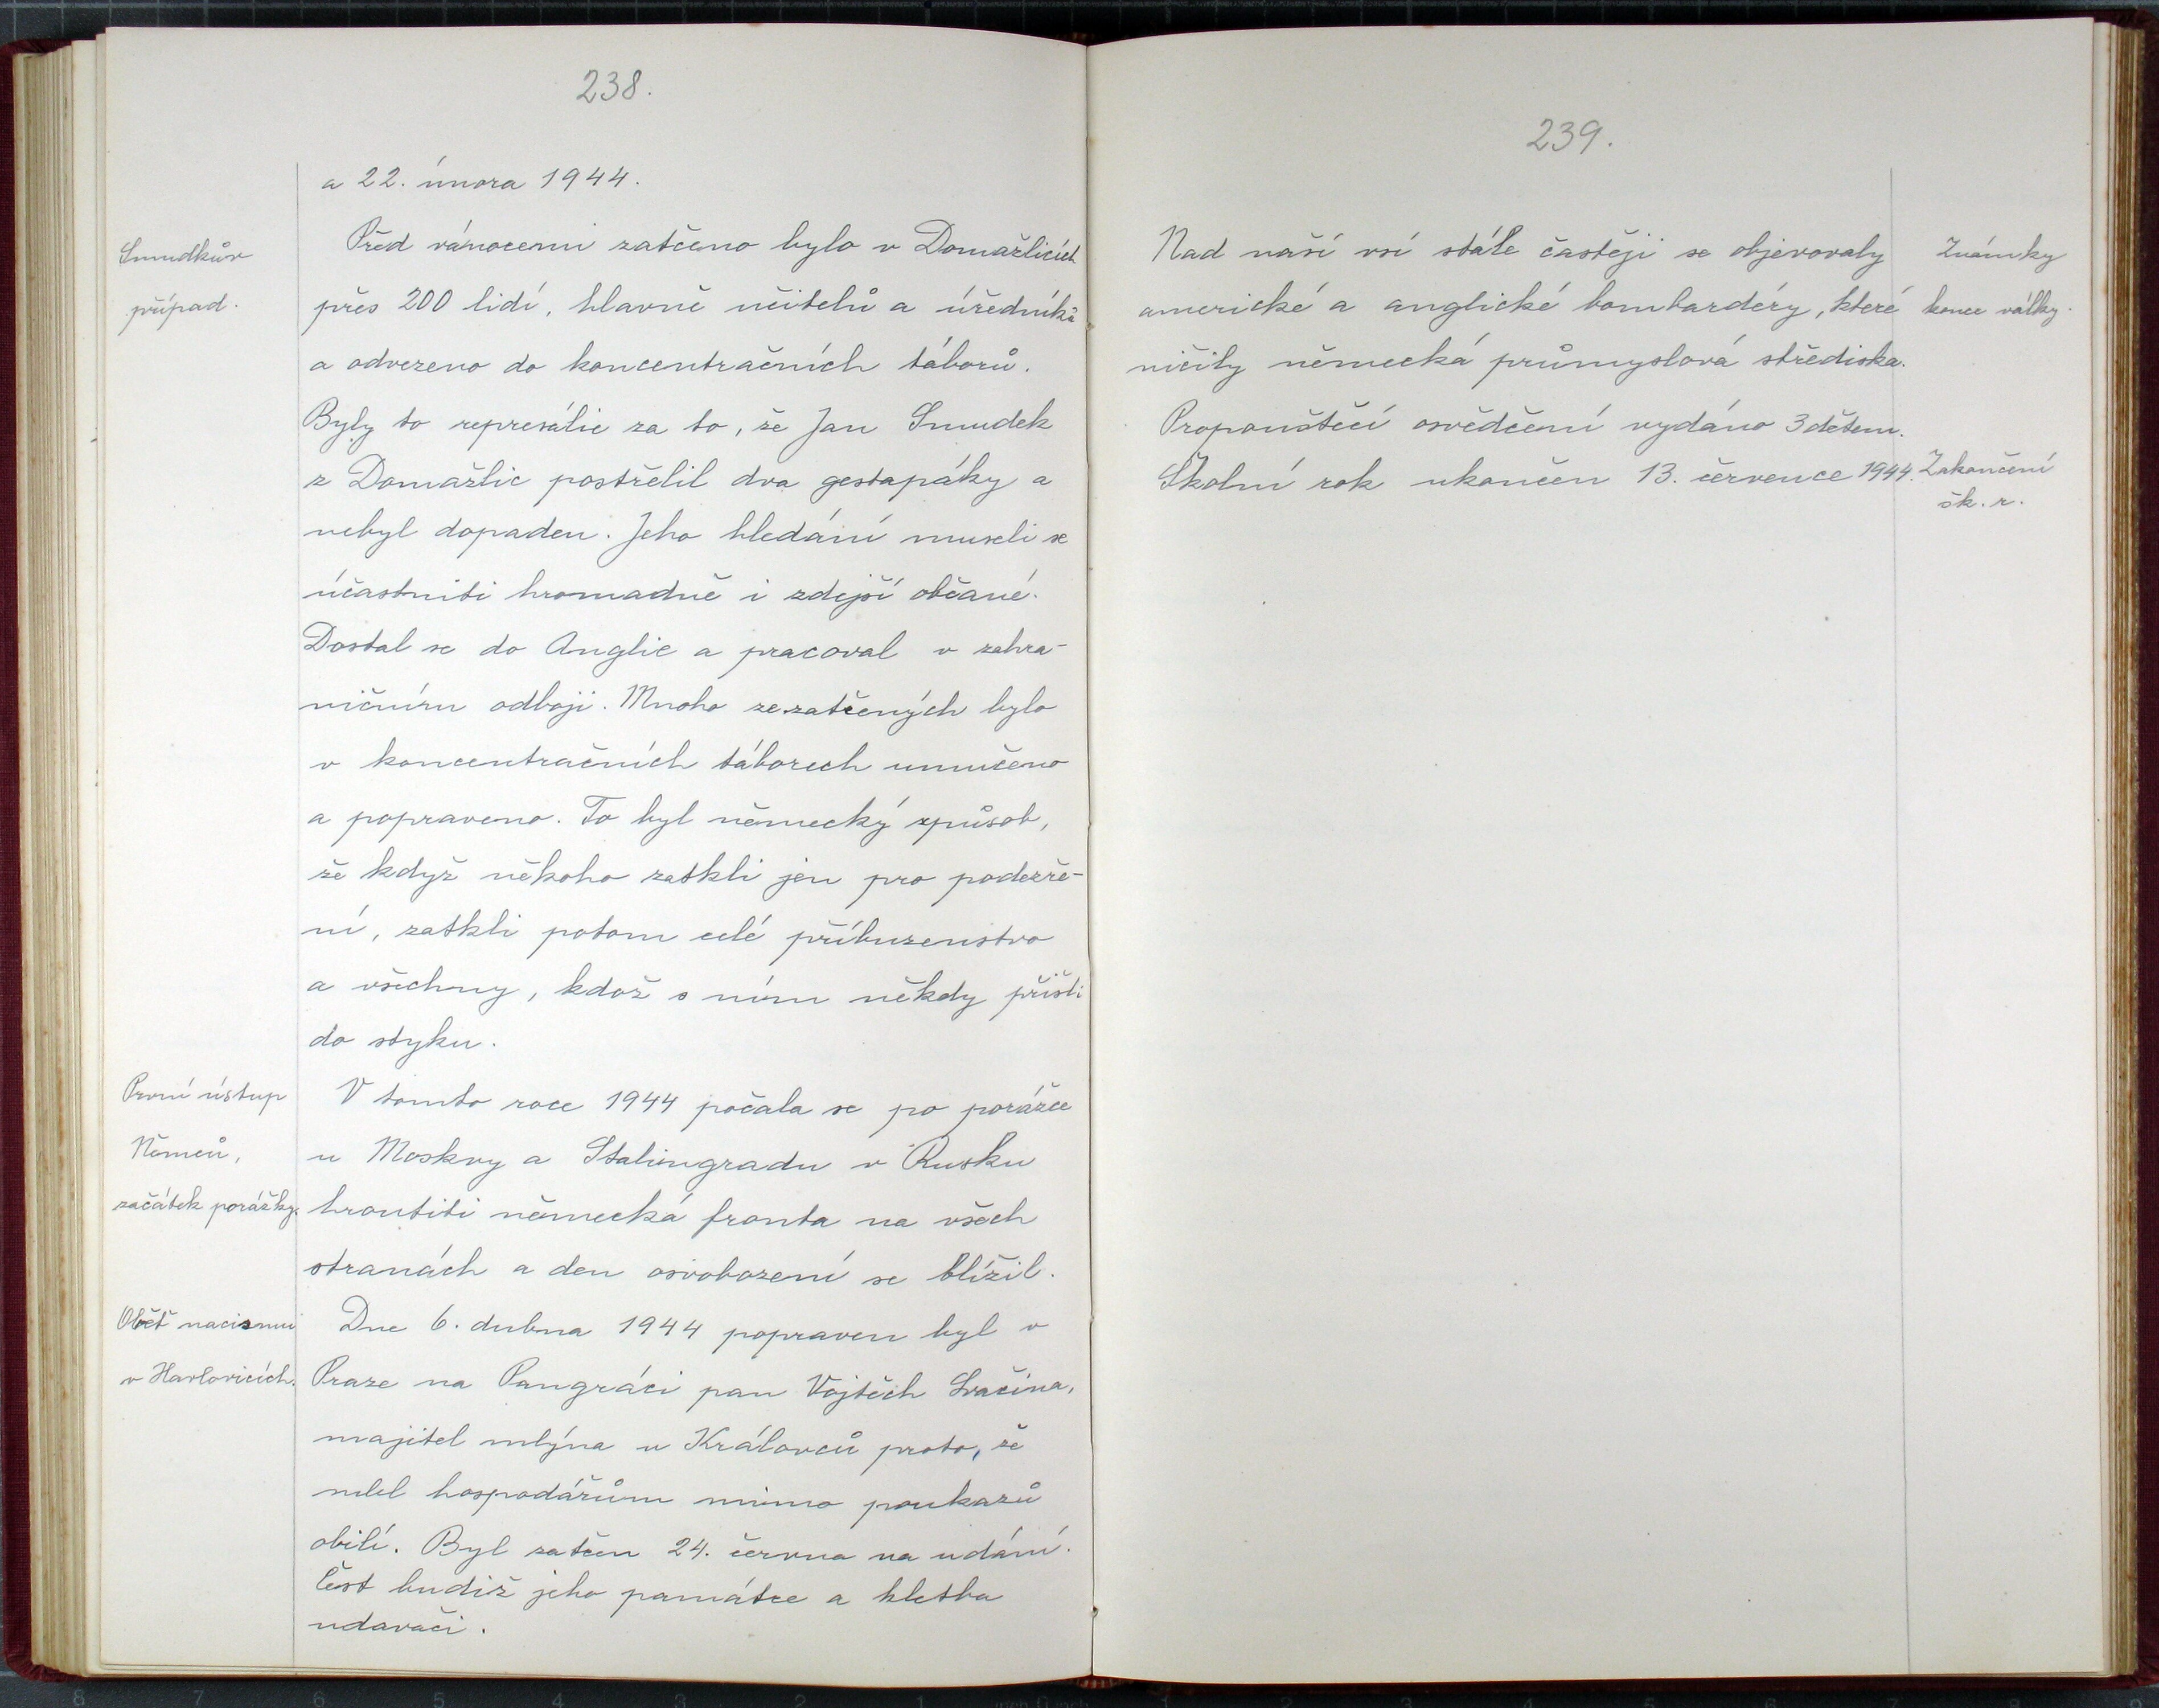 238.
a 22. února 1944.
Smudkův
případ.
Před vánocemi zatčeno bylo v Domažlicích
přes 200 lidí, hlavně učitelů a úředníků
a odvezeno do koncentračních táborů.
Byly to represálie za to, že Jan Smudek
z Domažlic postřelil dva gestapáky a
nebyl dopaden. Jeho hledání museli se
účastniti hromadně i zdejší občané.
Dostal se do Anglie a pracoval v zahra-
ničním odboji. Mnoho ze zatčených bylo
v koncentračních táborech umučeno
a popraveno. To byl německý způsob,
že když někoho zatkli jen pro podezře-
ní, zatkli potom celé příbuzenstvo
a všechny, kdož s ním někdy přišli
do styku.
První ústup
Němců,
začátek porážky.
V tomto roce 1944 počala se po porážce
u Moskvy a Stalingradu v Rusku
hroutiti německá fronta na všech
stranách a den osvobození se blížil.
Oběť nacismu
v Havlovicích.
Dne 6. dubna 1944 popraven byl v
Praze na Pangráci pan Vojtěch Svačina,
majitel mlýna u Královců proto, že
mlel hospodářům mimo poukazů
obilí. Byl zatčen 24. června na udání.
Čest budiž jeho památce a kletba
udavači.
239.
Nad naší vsí stále častěji se objevovaly
americké a anglické bombardéry, které
ničily německá průmyslová střediska.
Známky
konce války.
Propouštěcí osvědčení vydáno 3 dětem.
Školní rok ukončen 13. července 1944.
Zakončení
šk. r.